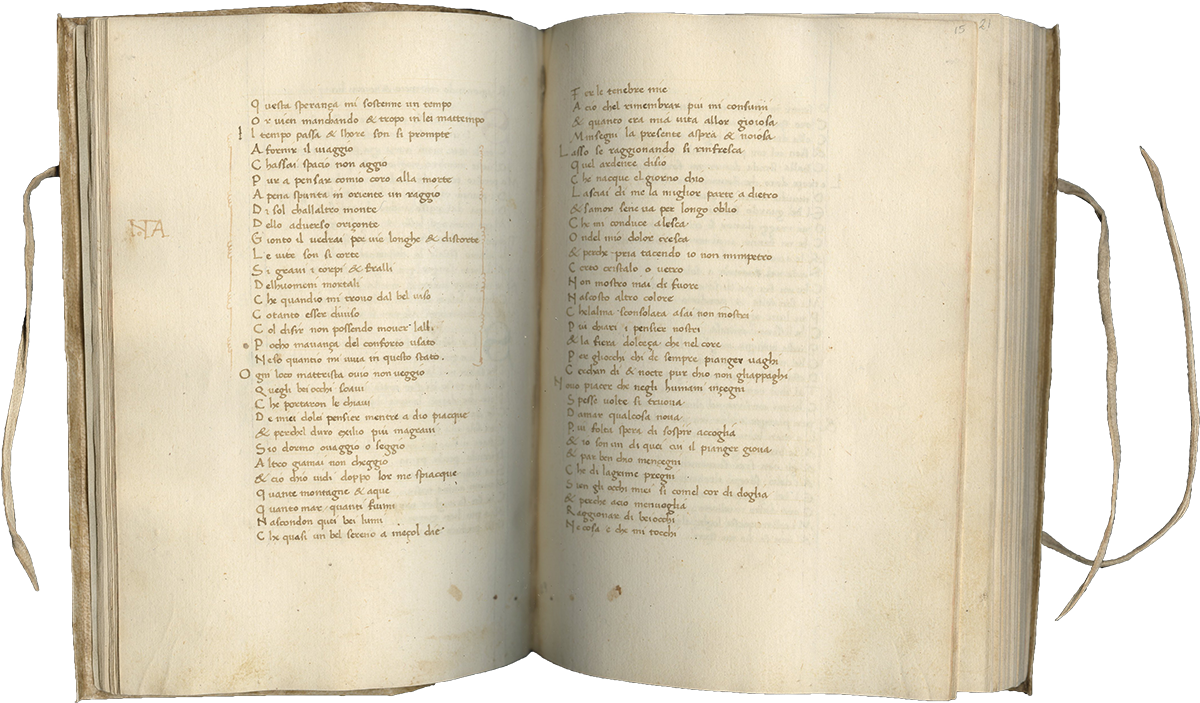 Questa sperança mi sostenne un tempo
Or vien manchando & tropo in lei mattempo
Il tempo passa & lhore son si prompte
A fornir il viaggio
Chassai spacio non aggio
Pur a pensar comio coro alla morte
Apena spunta in oriente un raggio
Di sol challaltro monte
Dello adverso oriçonte
Gionto il vedrai per vie longhe & distorte
Le vite son si corte
Si gravi i corpi & fralli
Delhuomeni mortali
Che quandio mi trovo dal bel viso
Cotanto esser diviso
Col disir non possendo mover lalli
Pocho mavança del conforto usato
Neso quantio mi viva in questo stato.
Ogni loco mattrista ovio non veggio
Quegli bei occhi soavi
Che portaron le chiavi
De miei dolci pensier mentre a dio piacque
& perchel duro exilio piu magravi
Sio dormo ovaggio o seggio
Altro giamai non cheggio
& cio chio vidi doppo lor me spiacque
Quante montagne & aque
Quanto mar quanti fiumi
Nascondon quei bei lumi
Che quasi un bel sereno a meçol die
NTA
15 21
Fer le tenebre mie
Acio chel rimembrar piu mi consumi
& quanto era mia vita allor gioiosa
Minsegni la presente aspra & noiosa
Lasso se raggionando si rinfresca
Quel ardente disio
Che nacque el giorno chio
Lasciai di me la miglior parte a dietro
& samor sene va per longo oblio
Che mi conduce alesca
Ondel mio dolor cresca
& perche pria tacendo io non mimpetro
Certo cristalo o vetro
Non mostro mai di fuore
Nascosto altro colore
Chelalma sconsolata asai non mostri
Piu chiari i pensier nostri
& la fiera dolceça che nel core
Per gliocchi che de sempre pianger vaghi
Cerchan di & nocte pur chio non gliappaghi
Novo piacer che negli humani ingegni
Spesse volte si truova
Damar qualcosa nova
Piu folta spera di sospir accoglia
& io son un di quei cui il pianger giova
& par ben chio mencegni
Che di lagrime pregni
Sien gli occhi miei si comel cor di doglia
& perche acio menvoglia
Raggionar di beiocchi
Ne cosa e che mi tocchi